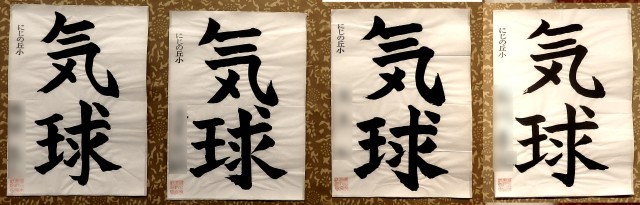 気球
にじの丘小
気球
にじの丘小
気球
にじの丘小
気球
にじの丘小